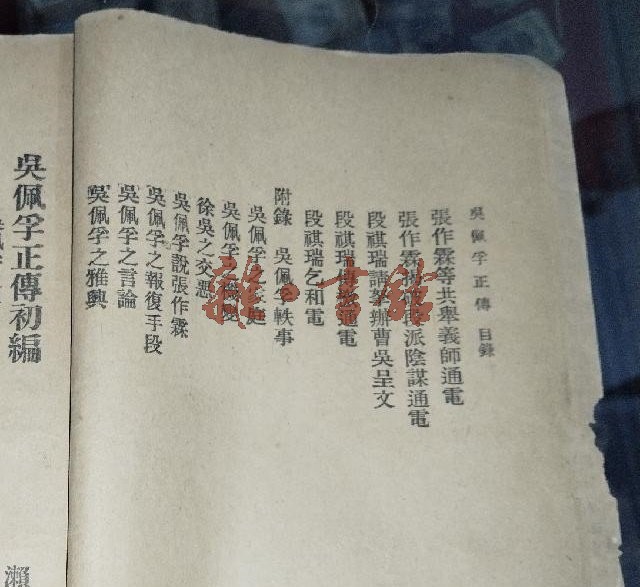 吳佩孚正傳 目錄
張作霖等共舉義師通電
張作霖揭破段派陰謀通電
段祺瑞請拿辦曹吳呈文
段祺瑞 通電
段祺瑞乞和電
附錄 吳佩孚軼事
吳佩孚之家庭
吳佩孚之
徐吳之交惡
吳佩孚說張作霖
吳佩孚之報復手段
吳佩孚之言論
吳佩孚之雅興
吳佩孚正傳初編
瀨
雜·書館